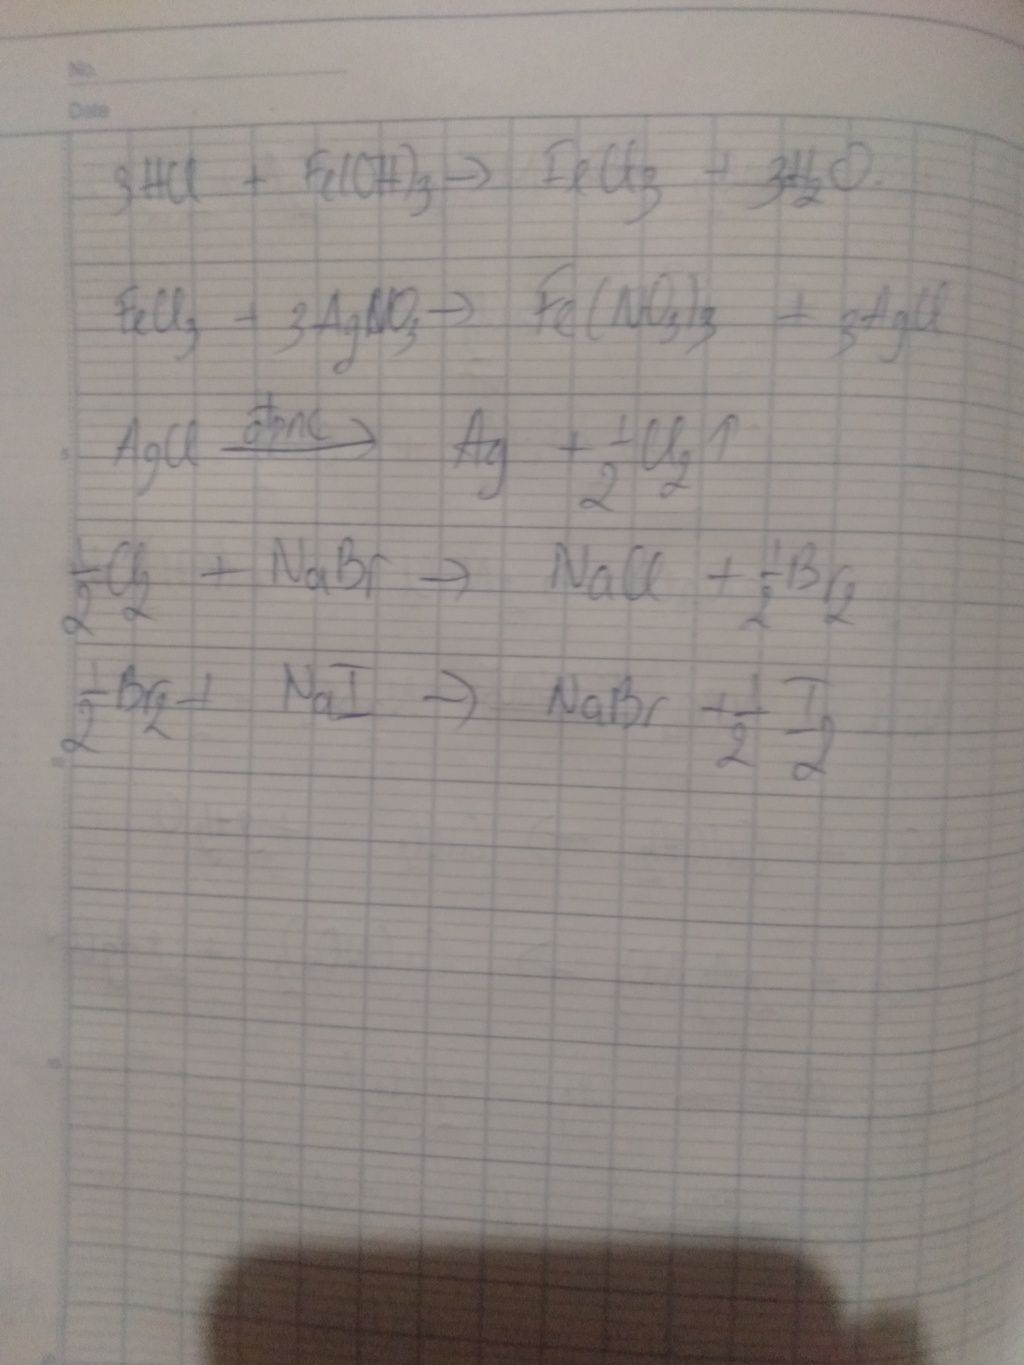 No.
Date
3HCl + Fe(OH)3 → FeCl3 + 3H2O.
FeCl3 + 3AgNO3 → Fe(NO3)3 + 3AgCl
AgCl đpnc → Ag + 1/2 Cl2 ↑
1/2 Cl2 + NaBr → NaCl + 1/2 Br2
1/2 Br2 + NaI → NaBr + 1/2 I2